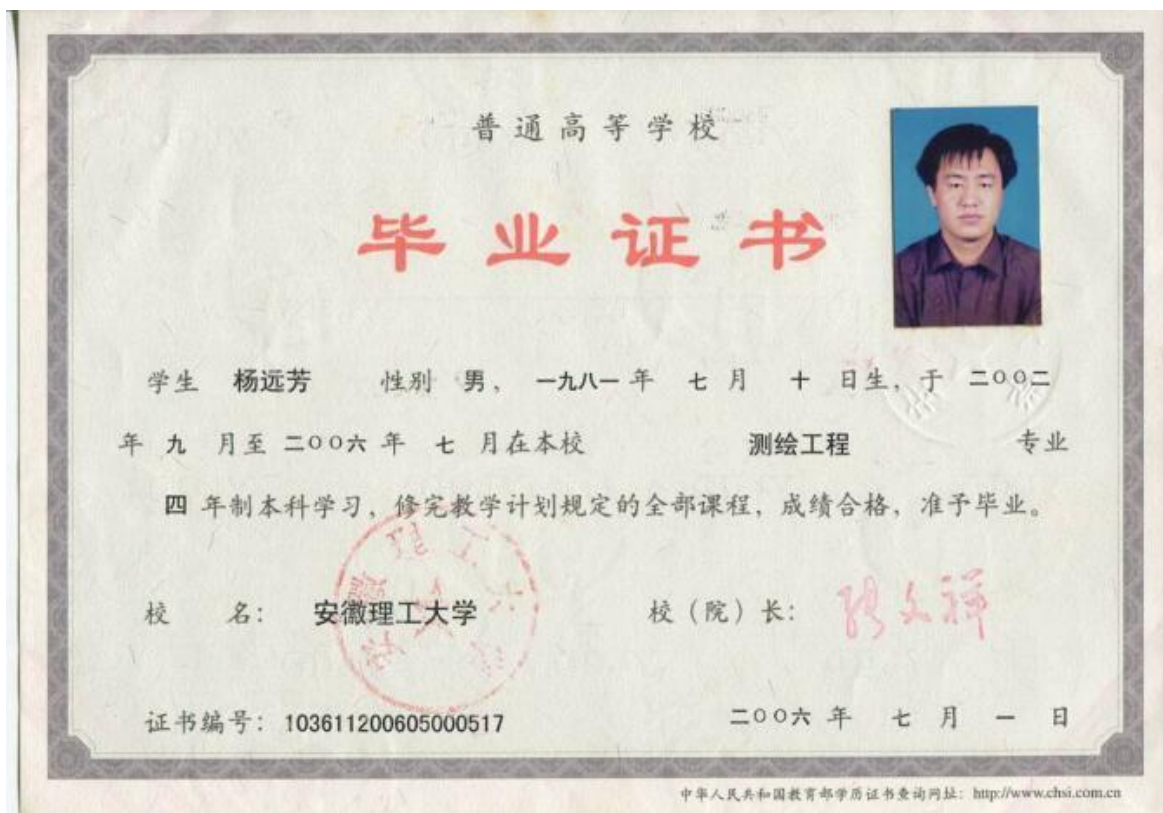 普通高等学校
毕业证书
学生 杨远芳 性别 男，一九八一年 七 月 十 日生，于 二〇〇二
年 九 月至 二〇〇六 年 七 月在本校 测绘工程 专业
四 年制本科学习，修完教学计划规定的全部课程，成绩合格，准予毕业。
校 名：安徽理工大学 校（院）长：张文祥
安徽理工大学
证书编号：103611200605000517 二〇〇六 年 七 月 一 日
中华人民共和国教育部学历证书查询网址：http://www.chsi.com.cn